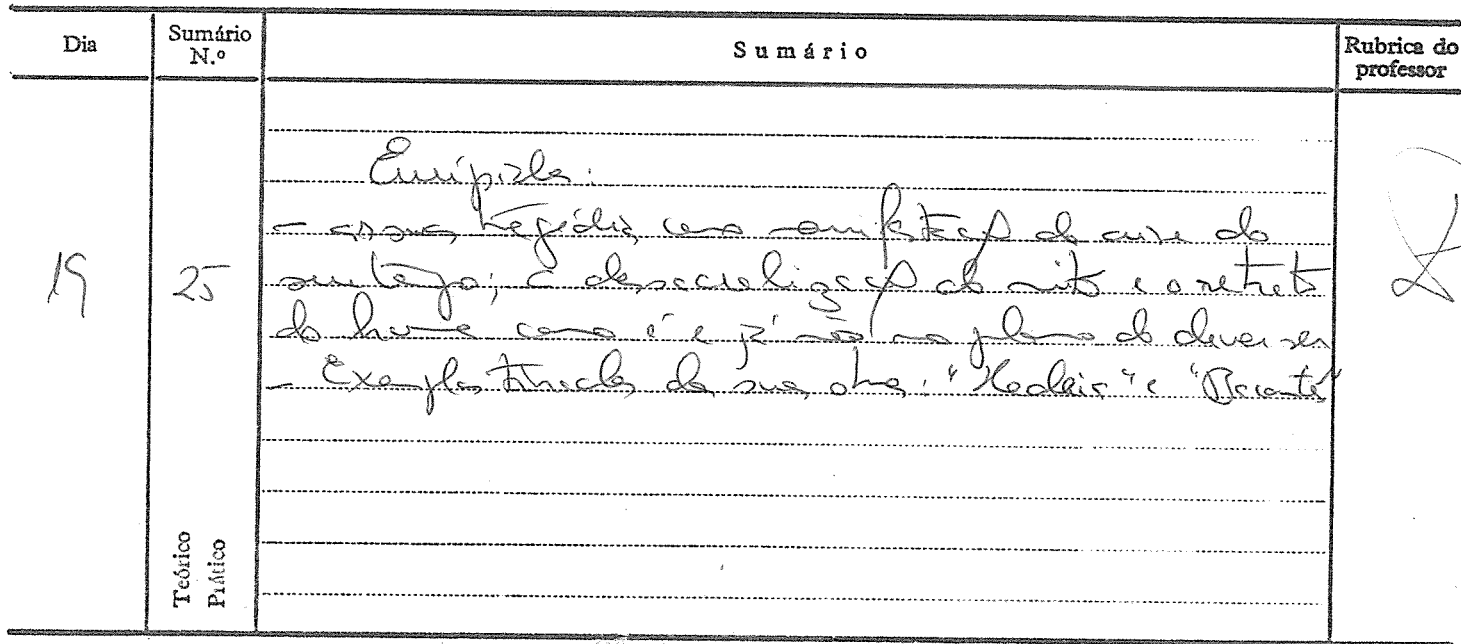 Dia
Sumário N.º
Sumário
Rubrica do professor
19
25
Eurípides:
- as suas tragédias como manifestação da crise do
seu tempo; a dessacralização do mito e o retrato
do homem como é e já não no plano do dever ser
- Exemplos tirados da sua obra: "Medeia" e "Bacantes"
Teórico
Prático